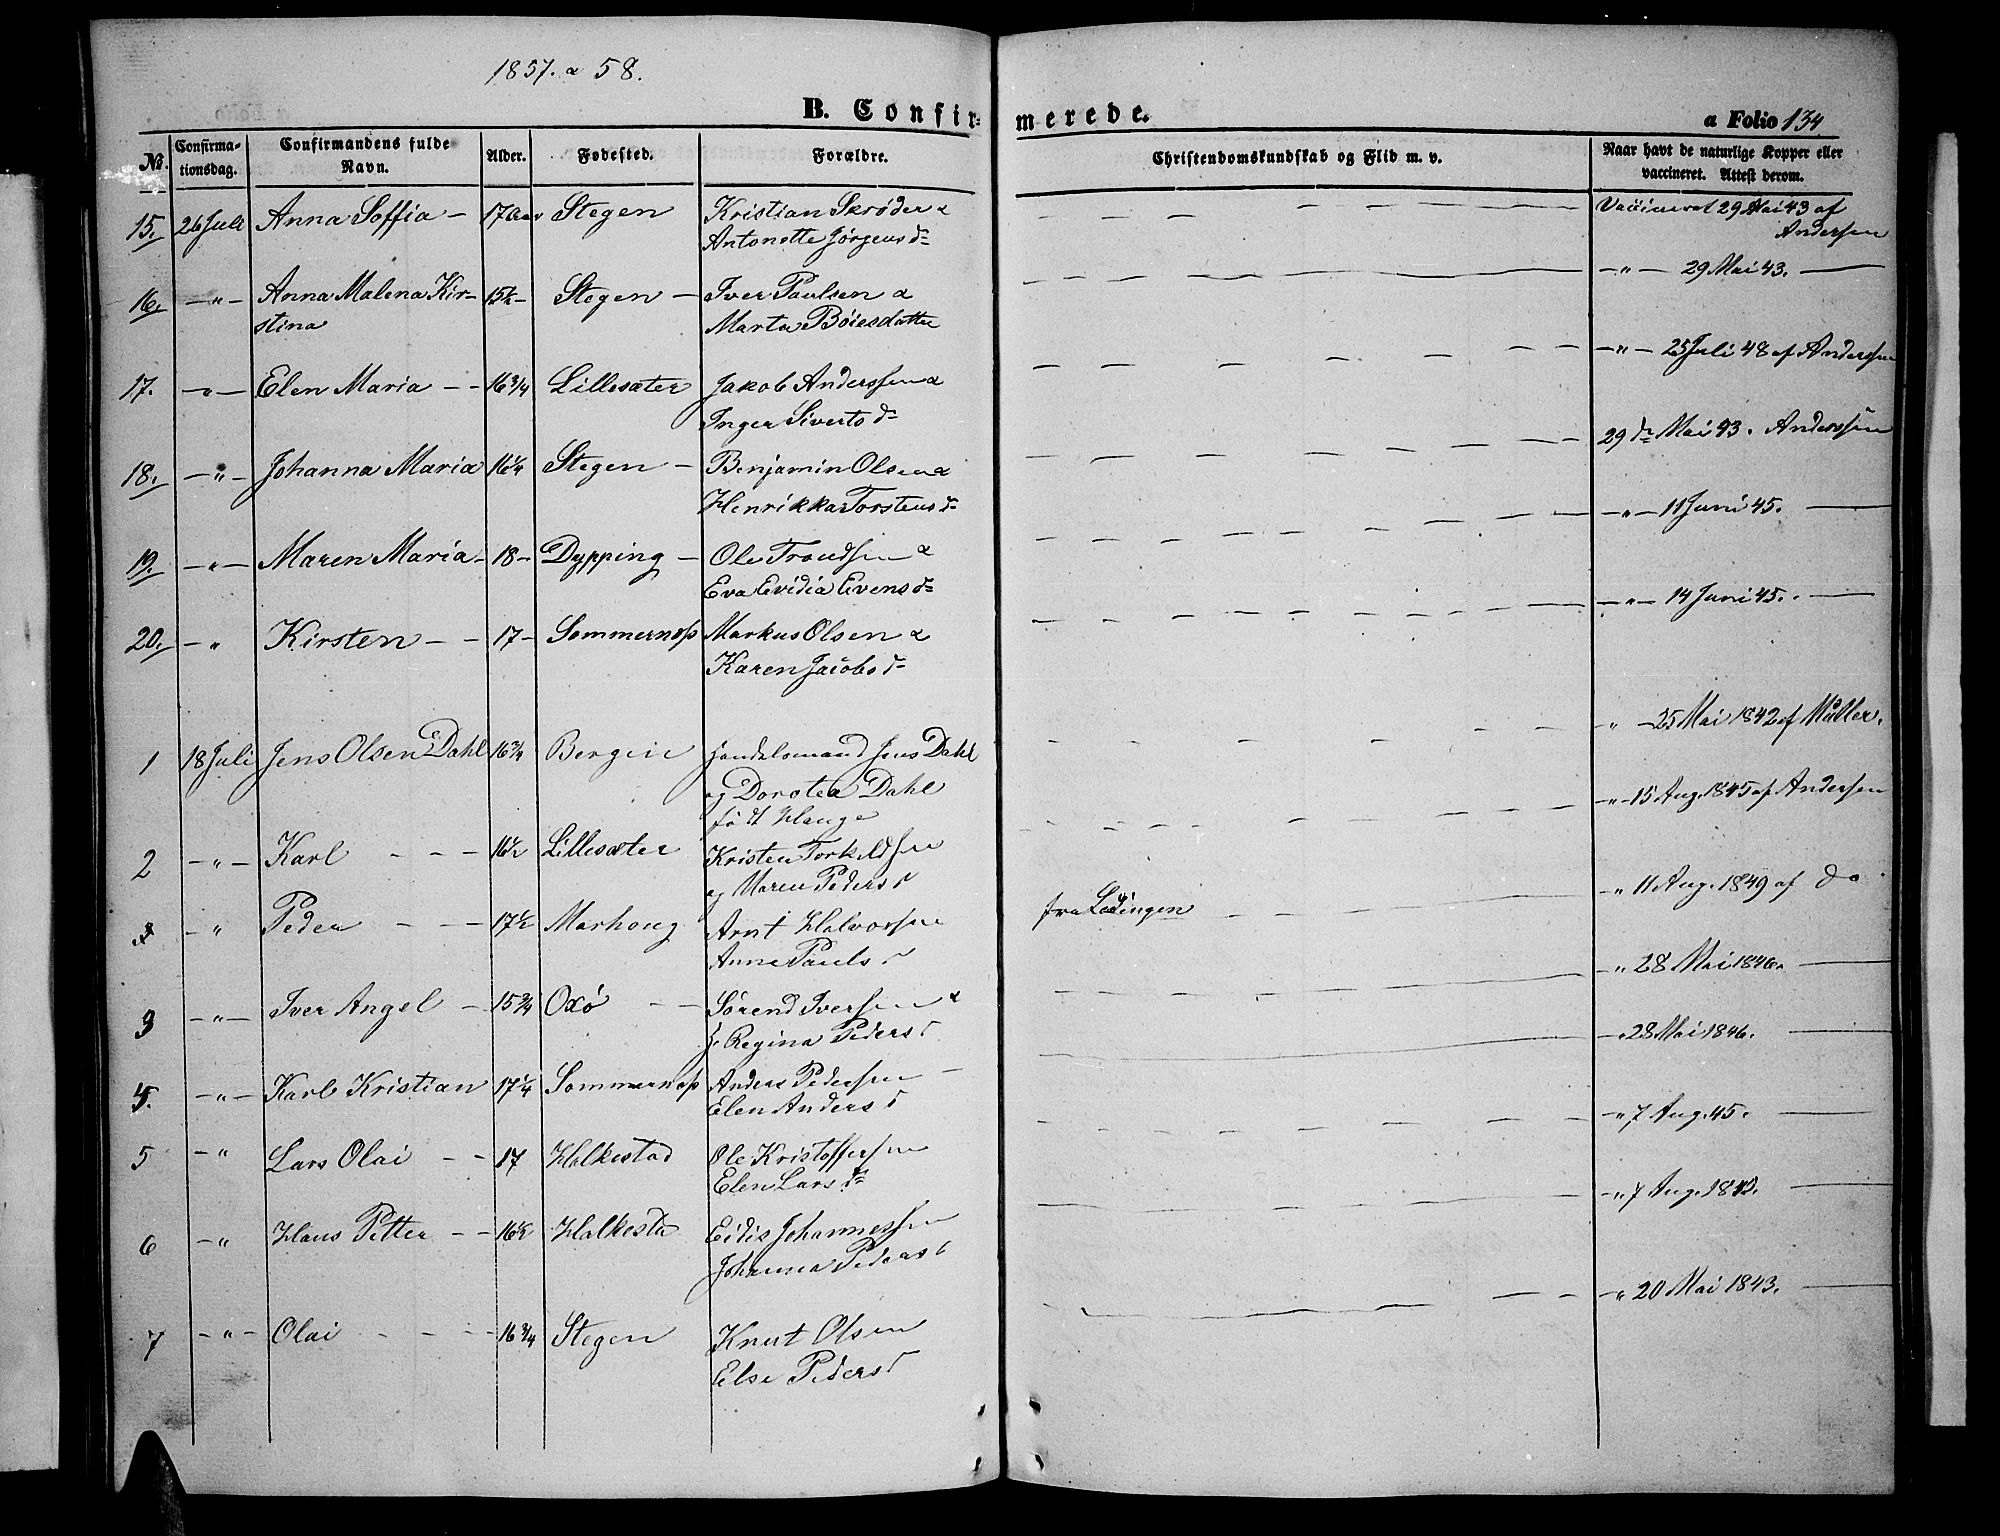 1857. & 58.
B. Confirmerede.
a Folio 134
No. Confirmationsdag. Confirmandens fulde Navn. Alder. Fødested. Forældre. Christendomskundskab og Flid m. v. Naar havt de naturlige Kopper eller vaccineret. Attest derom.
15. 26 Juli Anna Soffia – 17 Aar Stegen Kristian Skrøder & Vaccineret 29 Mai 43 af
Antonette Jörgens d= Andersen
16. –"– Anna Malena Kir- 15½ – Stegen – Iver Paulsen & –"– 29 Mai 43. –
stina Marta Böiesdatter
17. –"– Elen Maria – – 16 3/4 Lillesæter Jakob Anderssen & –"– 25 Juli 48 af Anderssen
Inger Siverts d=
18. –"– Johanna Maria 16¼ Stegen – Benjamin Olsen & 29 de Mai 43. Anderssen
Henrikka Torstens d=
19. –"– Maren Maria – 18 – Dypping – Ole Trondsen & –"– 11 Juni 45. –
Eva Evidia Evens d=
20. –" Kirsten – – 17 – Sommernæs Markus Olsen & –"– 14 Juni 45. –
Karen Jacobs d=
1 18 Juli Jens Olsen Dahl 16 3/4 Bergen Handelsmand Jens Dahl " – 25 Mai 1842 af Müller.
og Dorotea Dahl
født Hauge
2 –"– Karl – – – 16½ Lillesæter Kristen Torkildsen –"– 15 Aug. 1845 af Andersen
og Maren Peders d
– " Peder – – – 17½ Marhoug Arnt Halvorsen fra Lødingen – – " 11 Aug. 1849 af do
Anne Pauls d
3 –"– Iver Angel – 15 3/4 Oxö – – Sørend Iversen & –" 28 Mai 1846. –
Regina Peders d
4. –"– Karl Kristian 17¼ Sommernæs Anders Pedersen – –" 28 Mai 1846. –
Elen Anders d
5 –" Lars Olai – – 17 Halkestad Ole Kristoffersen –" 7 Aug. 45. –
Elen Lars d=
6 –" Hans Petter – – 16½ Halkesta Eidis Johannessen –" 7 Aug.
Johanna Peders d
7 –"– Olai – – – 16 3/4 Stegen Knut Olsen –" 20 Mai 1843. –
Else Peders d